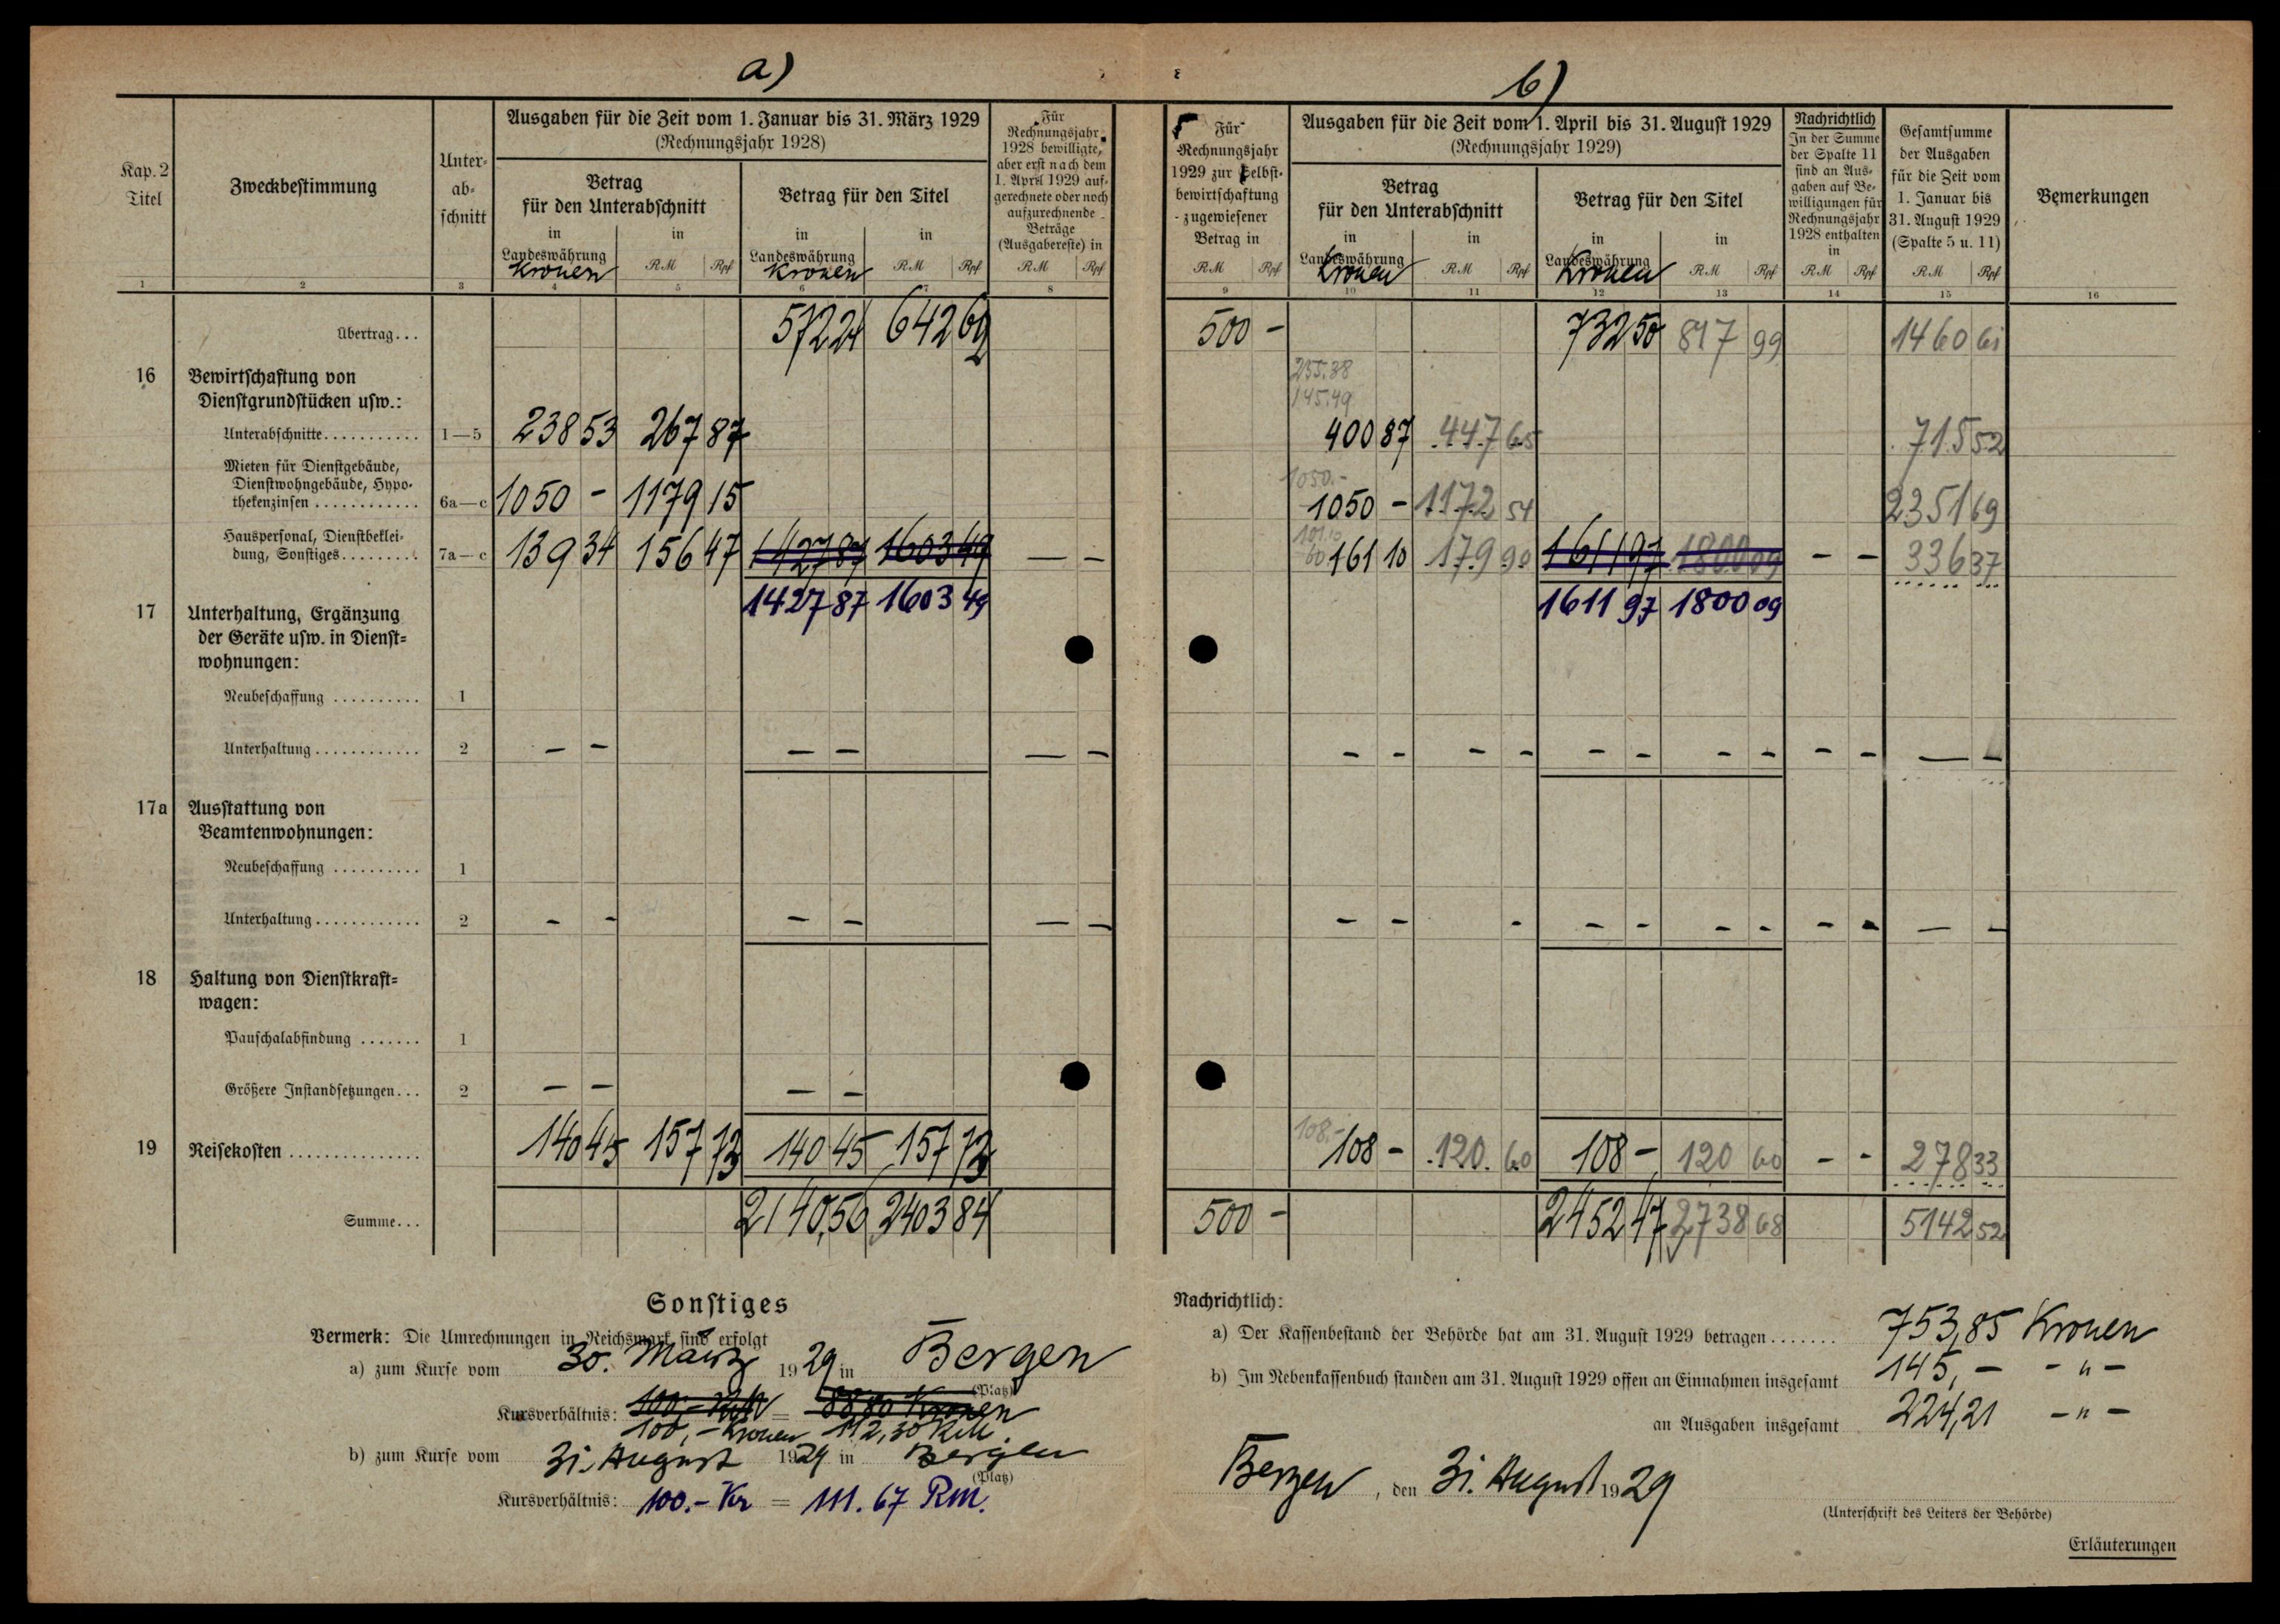 a)
b)
Kap. 2
Titel
Zweckbestimmung
Unter-
ab-
schnitt
Ausgaben für die Zeit vom 1. Januar bis 31. März 1929
(Rechnungsjahr 1928)
Betrag
für den Unterabschnitt
in Landeswährung Kronen
in RM Rpf
Betrag für den Titel
in Landeswährung Kronen
in RM Rpf
Für
Rechnungsjahr
1928 bewilligte,
aber erst nach dem
1. April 1929 auf-
gerechnete oder noch
aufzurechnende
Beträge
(Ausgabereste) in
RM Rpf
Für
Rechnungsjahr
1929 zur Selbst-
bewirtschaftung
zugewiesener
Betrag in
RM Rpf
Ausgaben für die Zeit vom 1. April bis 31. August 1929
(Rechnungsjahr 1929)
Betrag
für den Unterabschnitt
in Landeswährung Kronen
in RM Rpf
Betrag für den Titel
in Landeswährung Kronen
in RM Rpf
Nachrichtlich
In der Summe
der Spalte 11
sind an Aus-
gaben auf Be-
willigungen für
Rechnungsjahr
1928 enthalten
in
RM Rpf
Gesamtsumme
der Ausgaben
für die Zeit vom
1. Januar bis
31. August 1929
(Spalte 5 u. 11)
RM Rpf
Bemerkungen
1 2 3 4 5 6 7 8 9 10 11 12 13 14 15 16
Übertrag... 572 24 642 69 500 - 732 50 817 99 1460 61
16 Bewirtschaftung von
Dienstgrundstücken usw.:
255.38
145.49
Unterabschnitte........... 1—5 238 53 267 87 400 87 447 65 715 52
Mieten für Dienstgebäude,
Dienstwohngebäude, Hypo-
1050.-
thekenzinsen ............ 6a—c 1050 - 1179 15 1050 - 1172 54 2351 69
Hauspersonal, Dienstbeklei-
101.10
60
dung, Sonstiges......... 7a—c 139 34 156 47 1427 87 1603 49 — — 161 10 179 90 1611 97 1800 09 — — 336 37
1427 87 1603 49 1611 97 1800 09
17 Unterhaltung, Ergänzung
der Geräte usw. in Dienst-
wohnungen:
Neubeschaffung .......... 1
Unterhaltung............ 2 — — — — — — — — — — — — — — — — — —
17a Ausstattung von
Beamtenwohnungen:
Neubeschaffung .......... 1
Unterhaltung............ 2 — — — — — — — — — — — — — — — — —
18 Haltung von Dienstkraft-
wagen:
Pauschalabfindung ....... 1
Größere Instandsetzungen... 2 — — — —
108.-
19 Reisekosten ............... 140 45 157 73 140 45 157 73 108 - 120 60 108 - 120 60 - - 278 33
Summe... 2140,56 2403 84 500 - 2452 47 2738 68 5142 52
Sonstiges
Vermerk: Die Umrechnungen in Reichsmark sind erfolgt
a) zum Kurse vom 30. März 1929 in Bergen
(Platz)
Kursverhältnis: 100,- RM = 88.80 Kronen
100,- Kronen 112,30 RM.
b) zum Kurse vom 31. August 1929 in Bergen
(Platz)
Kursverhältnis: 100.- Kr = 111.67 Rm.
Nachrichtlich:
a) Der Kassenbestand der Behörde hat am 31. August 1929 betragen....... 753,85 Kronen
b) Im Nebenkassenbuch standen am 31. August 1929 offen an Einnahmen insgesamt 145,— - " -
an Ausgaben insgesamt 224,21 - " -
Bergen, den 31. August 1929
(Unterschrift des Leiters der Behörde)
Erläuterungen